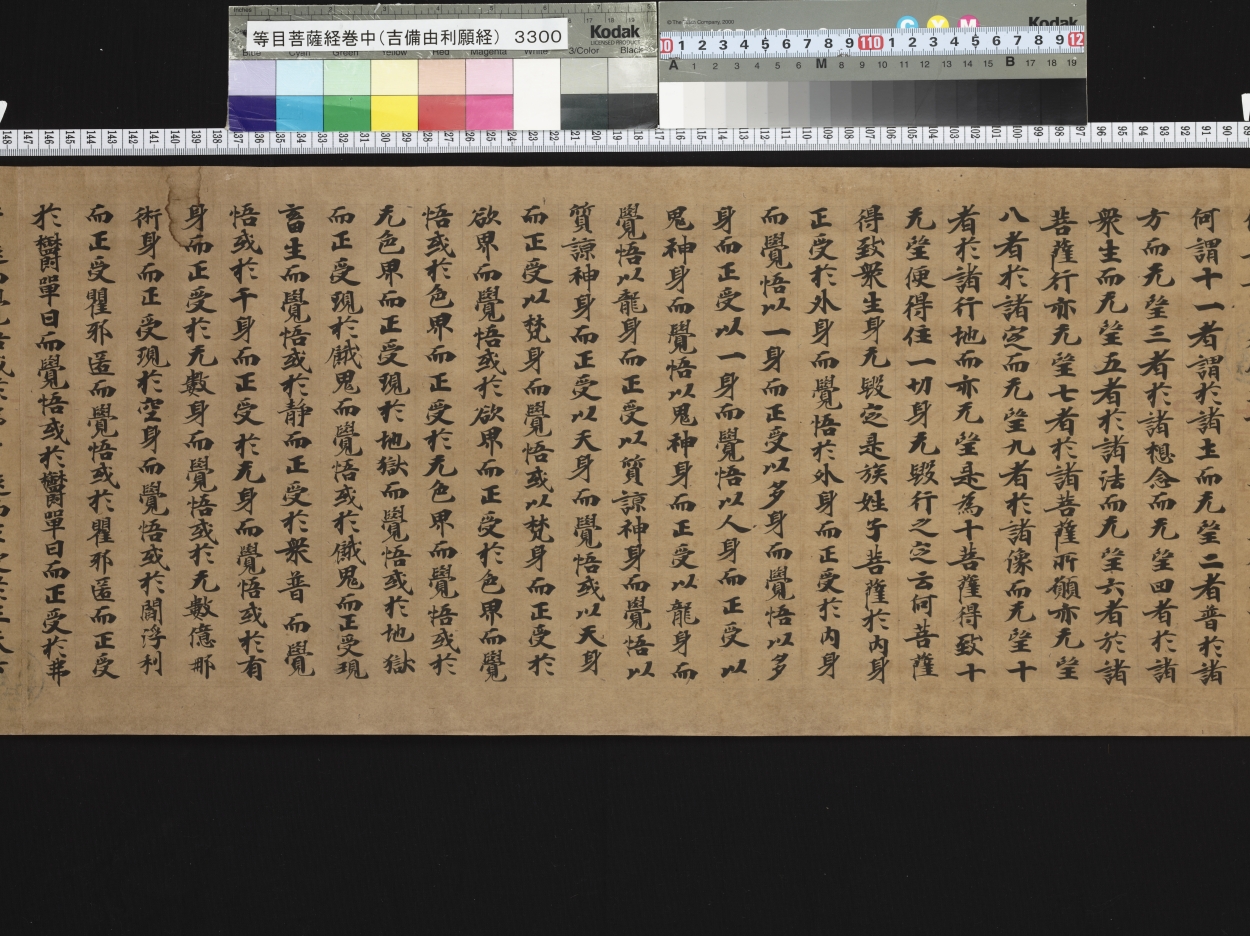 等目菩薩経巻中（吉備由利願経） 3300
何謂十一者謂於諸土而无㘴二者普於諸
方而无㘴三者於諸想念而无㘴四者於諸
衆生而无㘴五者於諸法而无㘴六者於諸
菩薩行亦无㘴七者於諸菩薩所願亦无㘴
八者於諸定而无㘴九者於諸像而无㘴十
者於諸行地而亦无㘴是為十菩薩得致十
无㘴便得住一切身无毀行之定云何菩薩
得致衆生身无毀定是族姓子菩薩於内身
正受於外身而覺悟於外身而正受於内身
而覺悟以一身而正受以多身而覺悟以多
身而正受以一身而覺悟以人身而正受以
鬼神身而覺悟以鬼神身而正受以龍身而
覺悟以龍身而正受以質諒神身而覺悟以
質諒神身而正受以天身而覺悟或以天身
而正受以梵身而覺悟或以梵身而正受於
欲界而覺悟或於欲界而正受於色界而覺
悟或於色界而正受於无色界而覺悟或於
无色界而正受現於地獄而覺悟或於地獄
而正受現於餓鬼而覺悟或於餓鬼而正受現
畜生而覺悟或於静而正受於衆普而覺
悟或於千身而正受於无身而覺悟或於有
身而正受於无數身而覺悟或於无數億那
術身而正受現於空身而覺悟或於閻浮利
而正受瞿耶匿而覺悟或於瞿耶匿而正受
於欝單曰而覺悟或於欝單曰而正受於弗